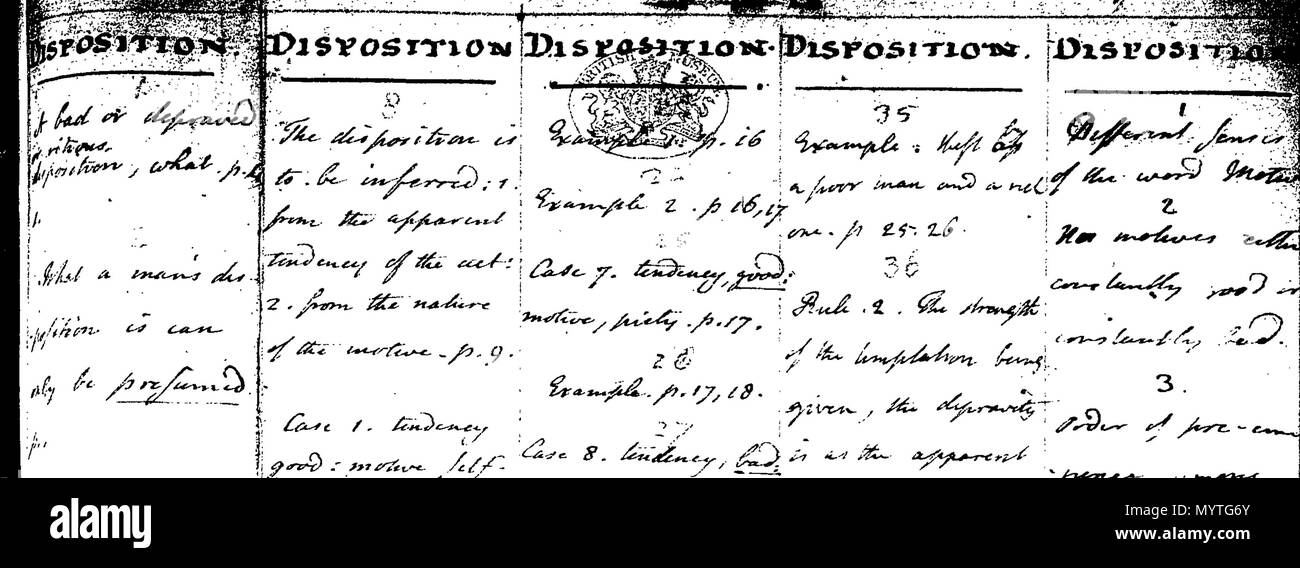 DISPOSITION.
1
A bad or depraved
or vitious
disposition, what. p.
1.
What a man's dis-
position is can
only be presumed
p.
DISPOSITION
8
The disposition is
to be inferred: 1.
from the apparent
tendency of the act:
2. from the nature
of the motive. p. 9.
Case 1. tendency
good: motive self-
DISPOSITION.
BRITISH MUSEUM
Example 1. p. 16
Example 2. p 16,17
Case 7. tendency, good:
motive, piety. p. 17.
26
Example. p. 17, 18.
27
Case 8. tendency, bad:
DISPOSITION.
35
Example: theft by
a poor man and a rich
one. p 25. 26.
36
Rule. 2. The strength
of the temptation being
given, the depravity
is as the apparent
DISPOSITION
1
Different senses
of the word Motive
2
No motives either
constantly good or
constantly bad.
3.
Order of pre-emi
alamy
alamy
Image ID: MYTG6Y
www.alamy.com